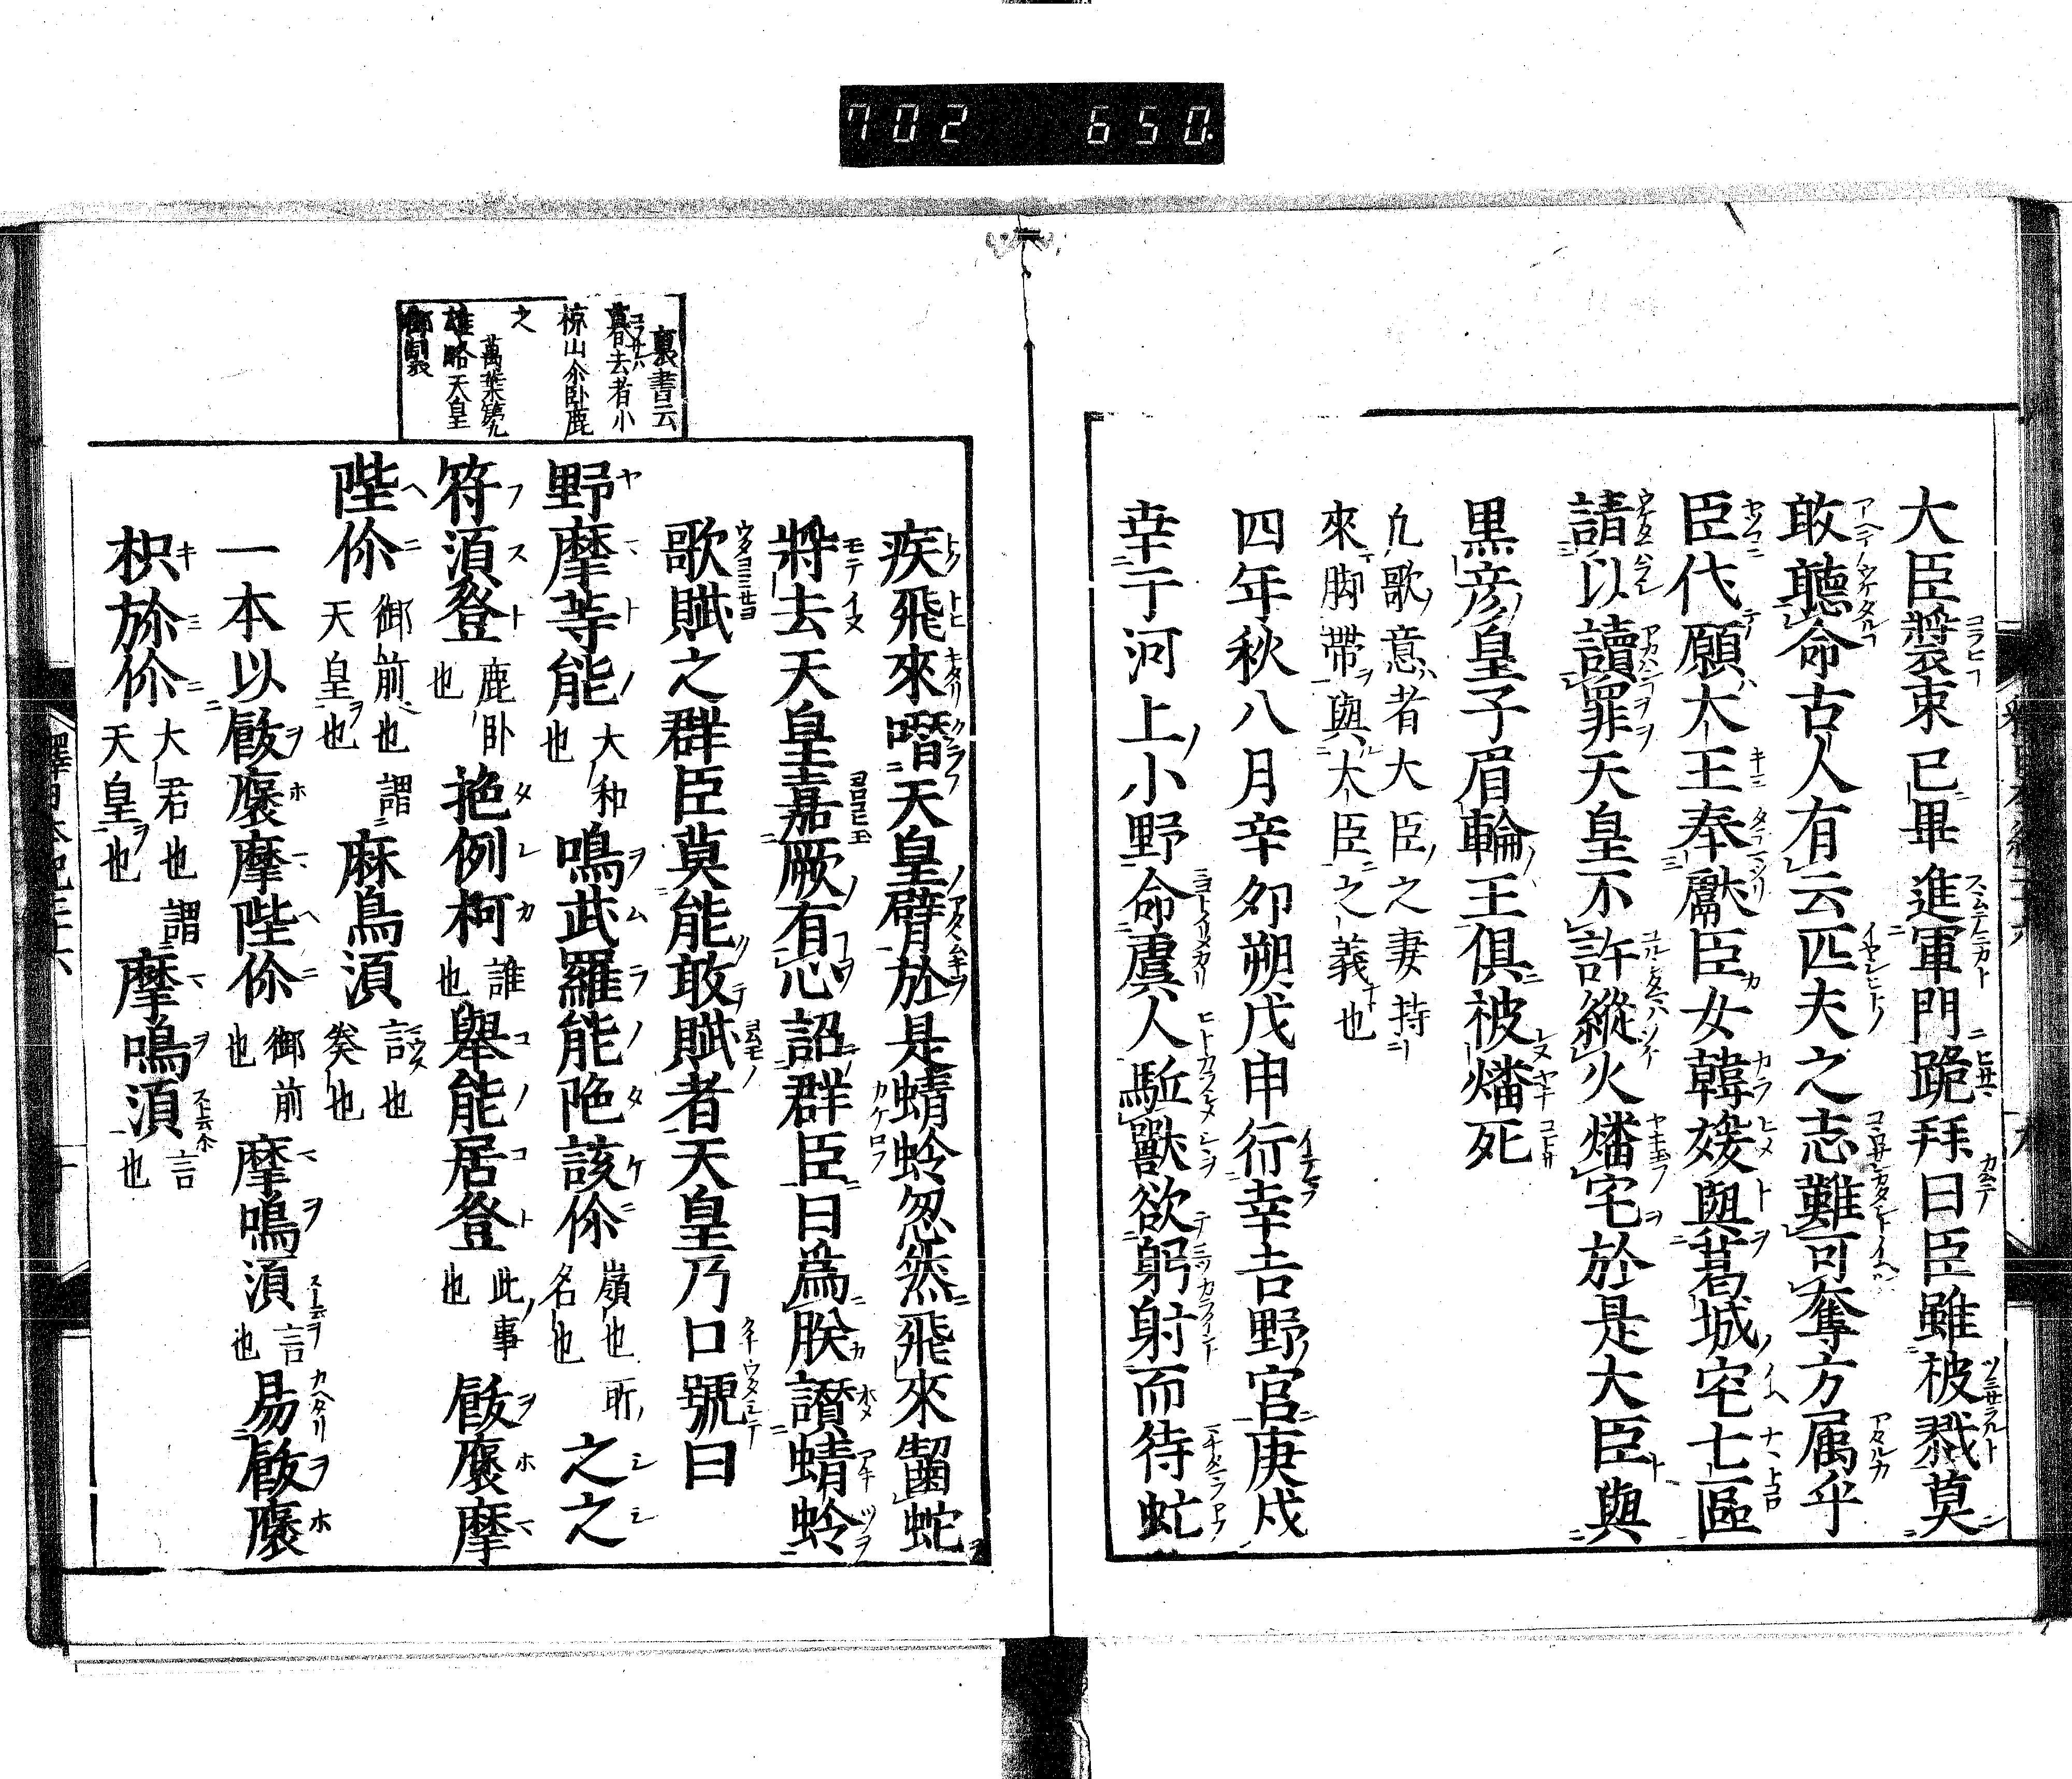 702 650.
大臣裝束已畢進軍門跪拜曰臣雖被戮莫
敢聽命古人有云匹夫之志難可奪方属乎
臣伏願大王奉獻臣女韓媛與葛城宅七區
請以讀罪天皇不許縱火燔宅於是大臣與
黒彦皇子眉輪王俱被燔死
凢歌意者大臣之妻持
來脚帶與大臣之義也
四年秋八月辛卯朔戊申行幸吉野宮庚戌
幸于河上小野命虞人駈獸欲躬射而待虻
疾飛來噆天皇臂於是蜻蛉忽然飛來齧蛇
將去天皇嘉厥有心詔群臣曰爲朕讃蜻蛉
歌賦之群臣莫能敢賦者天皇乃口號曰
野摩等能大和也嗚武羅能陁該你嶺也所名也之之
符湏登鹿卧也拖例柯誰也舉能居登此事也飫褒摩
陛你御前也謂天皇也麻烏湏訁也矣也
一本以飫褒摩陛你御前也摩嗚湏言也易飫褒
枳旀你大君也謂天皇也摩嗚湏言也
裏書云
暮去者小
椋山尒卧鹿
之
萬葉第九
雄略天皇
御製